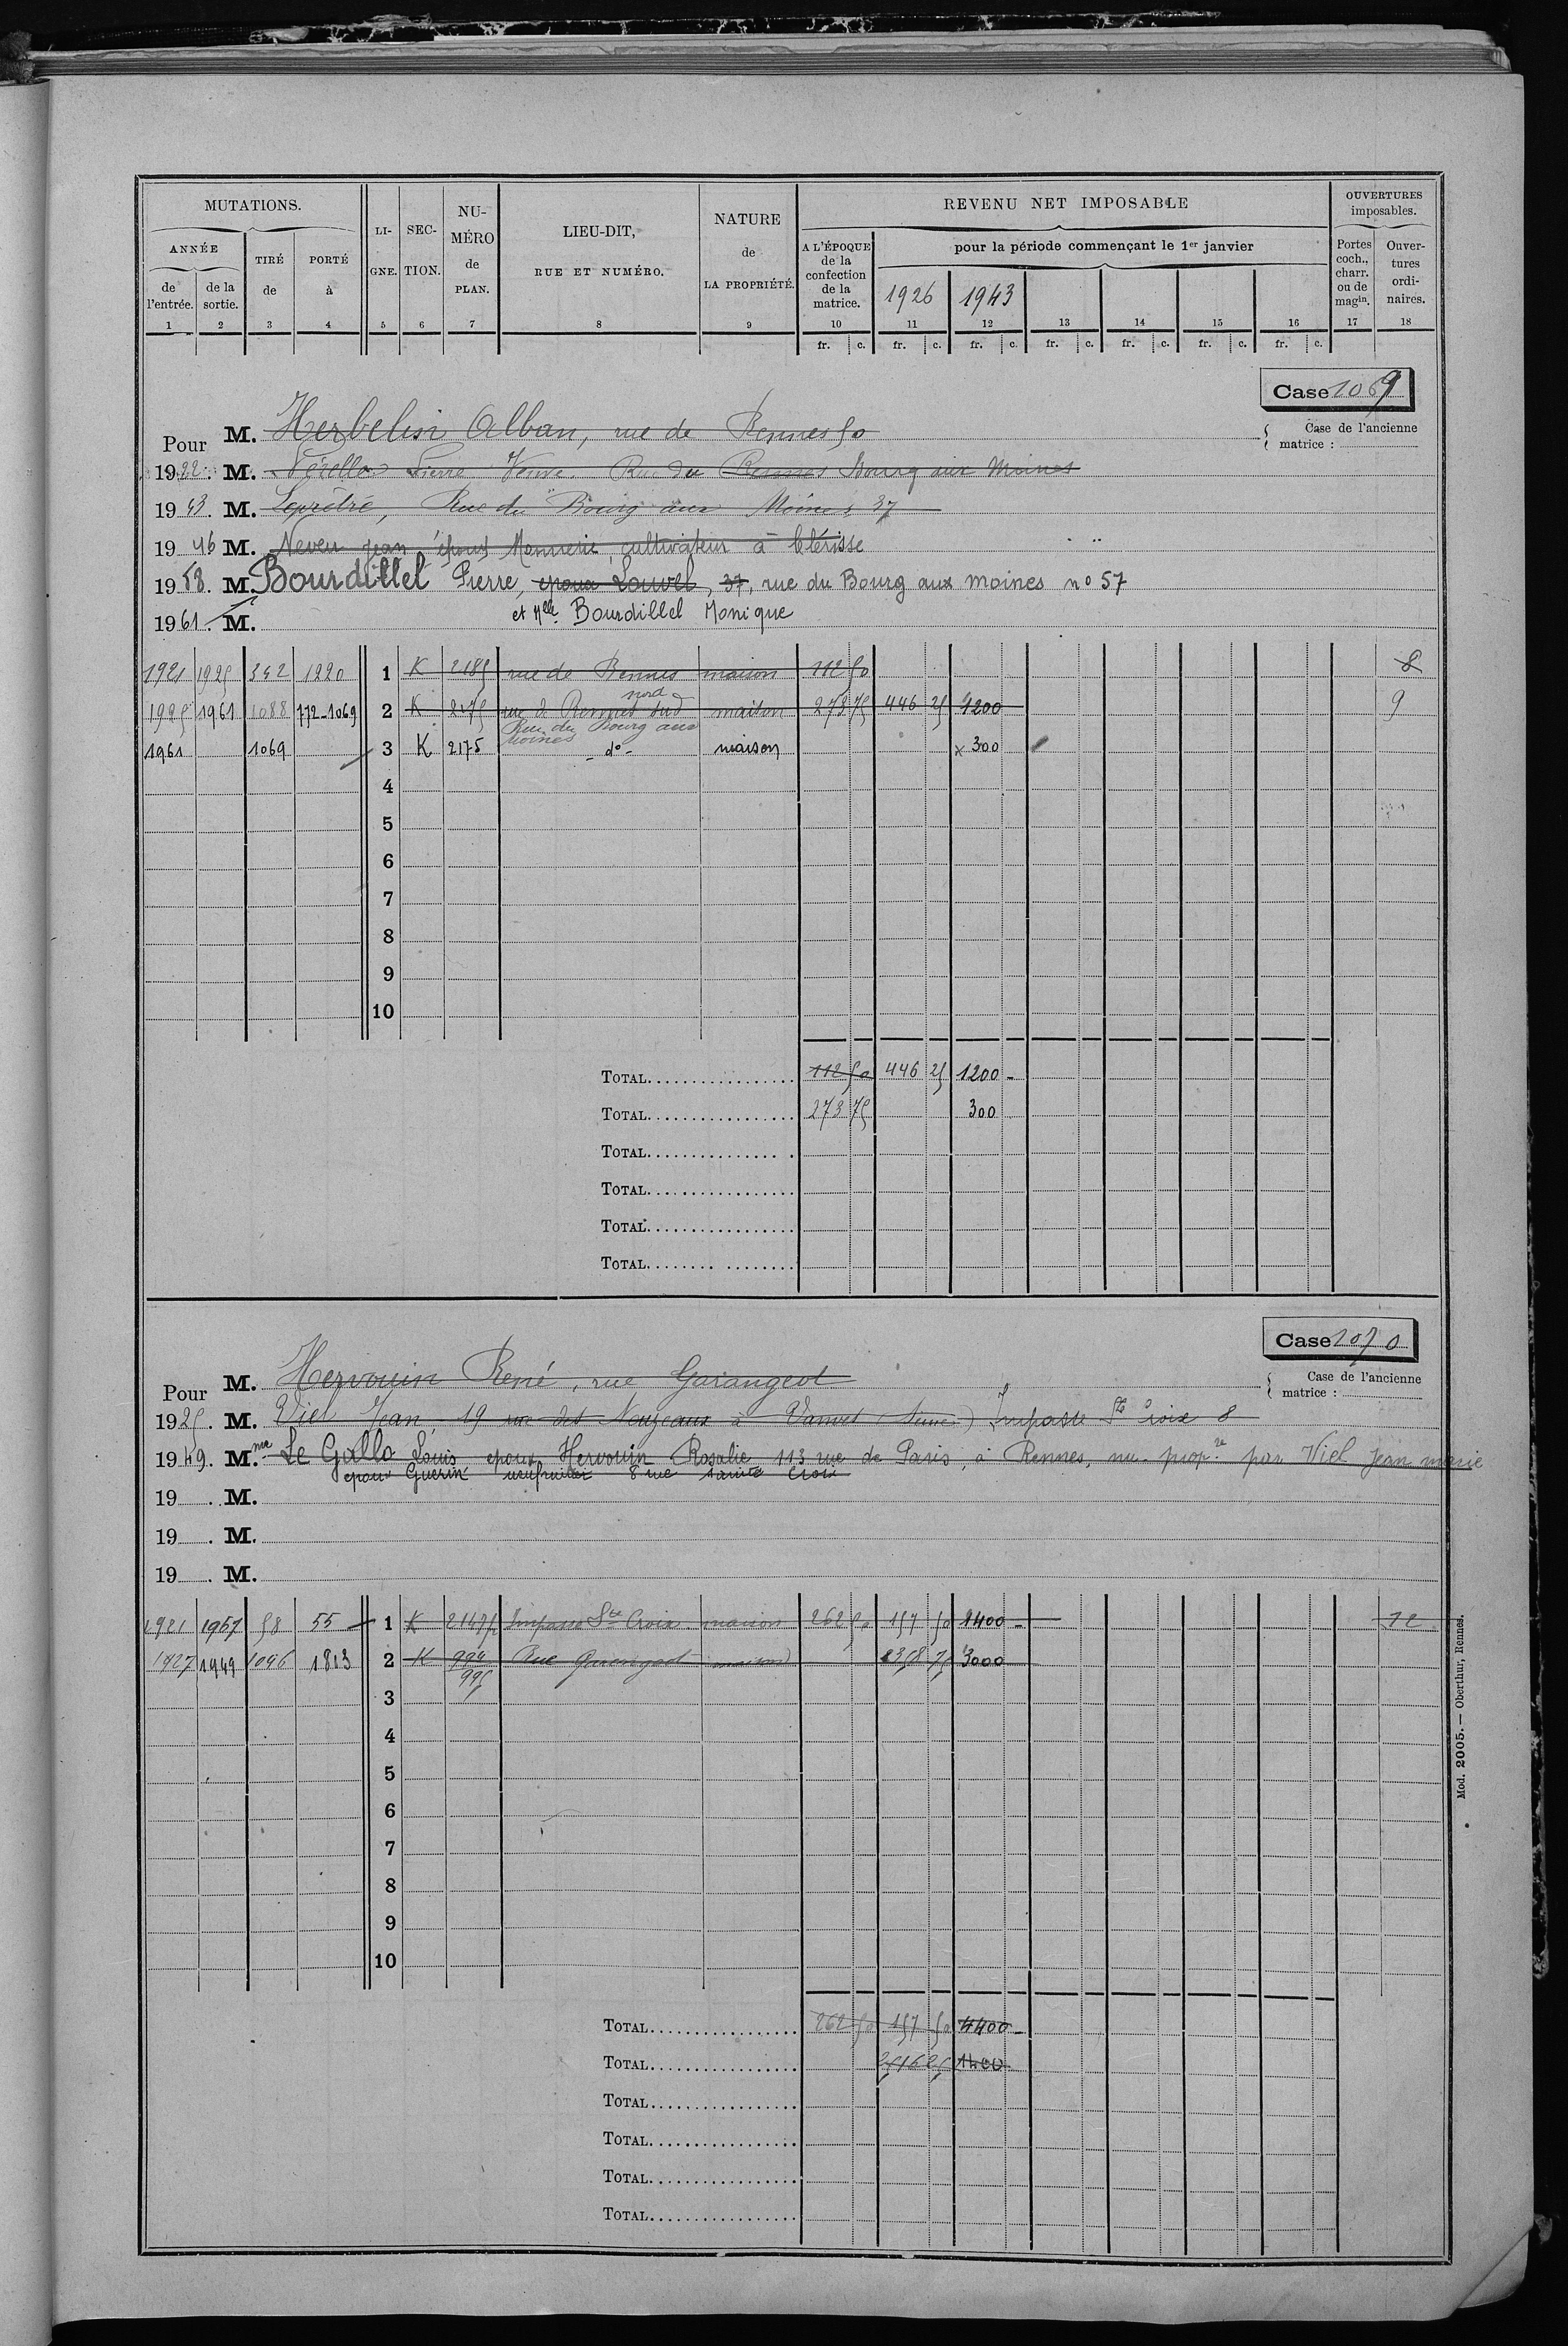 MUTATIONS. LI-GNE. SEC-TION. NU-MÉRO de PLAN. LIEU-DIT, RUE ET NUMÉRO. NATURE de LA PROPRIÉTÉ. REVENU NET IMPOSABLE OUVERTURES imposables.
ANNÉE TIRÉ de PORTÉ à A L'ÉPOQUE de la confection de la matrice. pour la période commençant le 1er janvier Portes coch., charr. ou de magin. Ouver-tures ordi-naires.
de l'entrée. de la sortie. 1926 1943
1 2 3 4 5 6 7 8 9 10 11 12 13 14 15 16 17 18
fr. c. fr. c. fr. c. fr. c. fr. c. fr. c. fr. c.
Case 1069
Pour M. Herbelin Alban, rue de Rennes 50
Case de l'ancienne matrice :
1922. M. Pierre Veuve. Rue du Rennes Bourg aux Moines
1943. M. Leprêtre, Rue du Bourg aux Moines 37
1946 M. Neveu Jean époux cultivateur à
1958. M. Bourdillel Pierre, époux Louvel, 37, rue du Bourg aux moines no 57
1961. M. et Melle Bourdillel Monique
1921 1925 342 1220 1 K 2185 rue de Rennes maison 112 50 8
1925 1961 1088 772-1069 2 K 2175 rue de Rennes sud nord maison 273 75 446 25 1200 9
Rue du Bourg aux Moines
1961 1069 3 K 2175 -do- maison x 300
4
5
6
7
8
9
10
TOTAL 112 50 446 25 1200 -
TOTAL 273 75 300
TOTAL
TOTAL
TOTAL
TOTAL
Case 1070
Pour M. Hervouin René, rue Garangeot
Case de l'ancienne matrice :
1925. M. Viel Jean, 19 rue des à Vanves (Seine) Impasse Ste Croix 8
1949. Mme Le Gallo Louis époux Hervouin Rosalie 113 rue de Paris, à Rennes, nu-propre par Viel Jean marie
époux Guerin usufruitier 8 rue sainte Croix
19 . M.
19 . M.
19 . M.
1921 1967 58 55 1 K 2147p Impasse Ste Croix maison 262 50 157 50 1400 - 12
1927 1949 1046 1813 2 K 994 995 Rue Garangeot maison 2358 75 3000
3
4
5
6
7
8
9
10
TOTAL 262 50 157 50 4400 -
TOTAL 2516 25 1400
TOTAL
TOTAL
TOTAL
TOTAL
Mod. 2005. — Oberthur, Rennes.